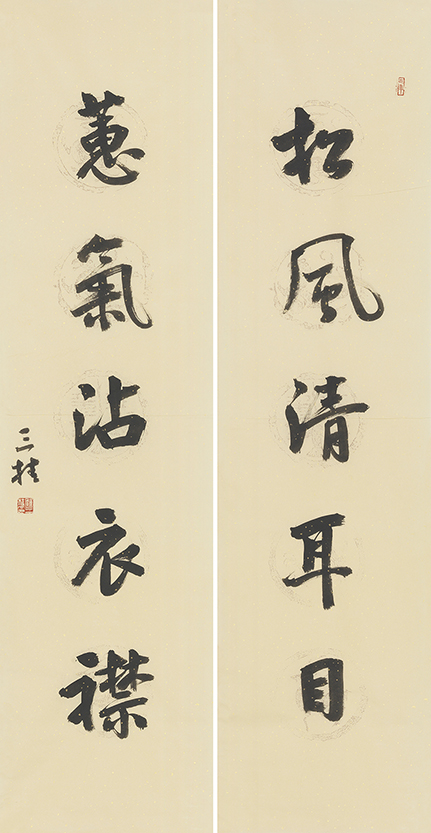 松風清耳目
蕙氣沾衣襟
三桂